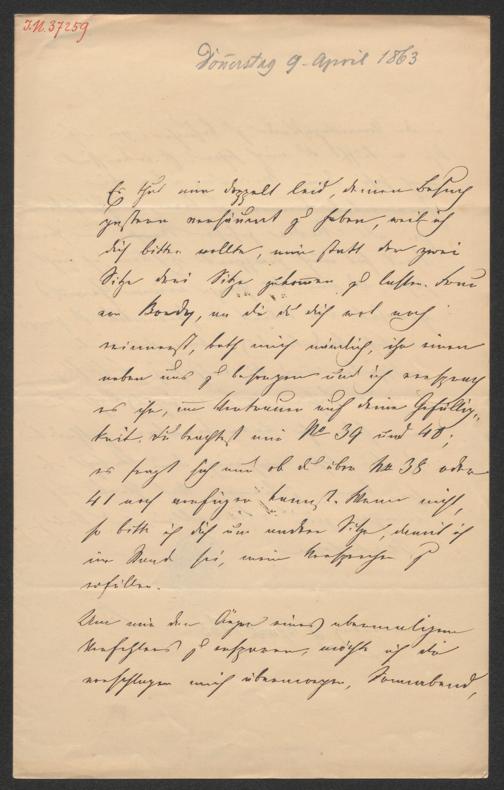 I.N. 37259
Donnerstag 9. April 1863
Es thut mir doppelt leid, deinen Besuch
gestern versäumt zu haben, weil ich
dich bitten wollte, mir statt der zwei
Sitze drei Sitze zukommen zu lassen. Frau
von Bondy, an die du dich wol noch
erinnerst, bath mich nämlich, ihr einen
neben uns zu besorgen und ich versprach
es ihr, im Vertrauen auf deine Gefällig-
keit. Du brachtest mir No 39 und 40;
es fragt sich nun ob du über No 38 oder
41 noch verfügen kannst. Wenn nicht,
so bitte ich dich um andere Sitze, damit ich
im Stand sei, mein Versprechen zu
erfüllen.
Um mir den Ärger eines abermaligen
Verfehlens zu ersparen, möchte ich dir
vorschlagen mich übermorgen, Sonnabend,